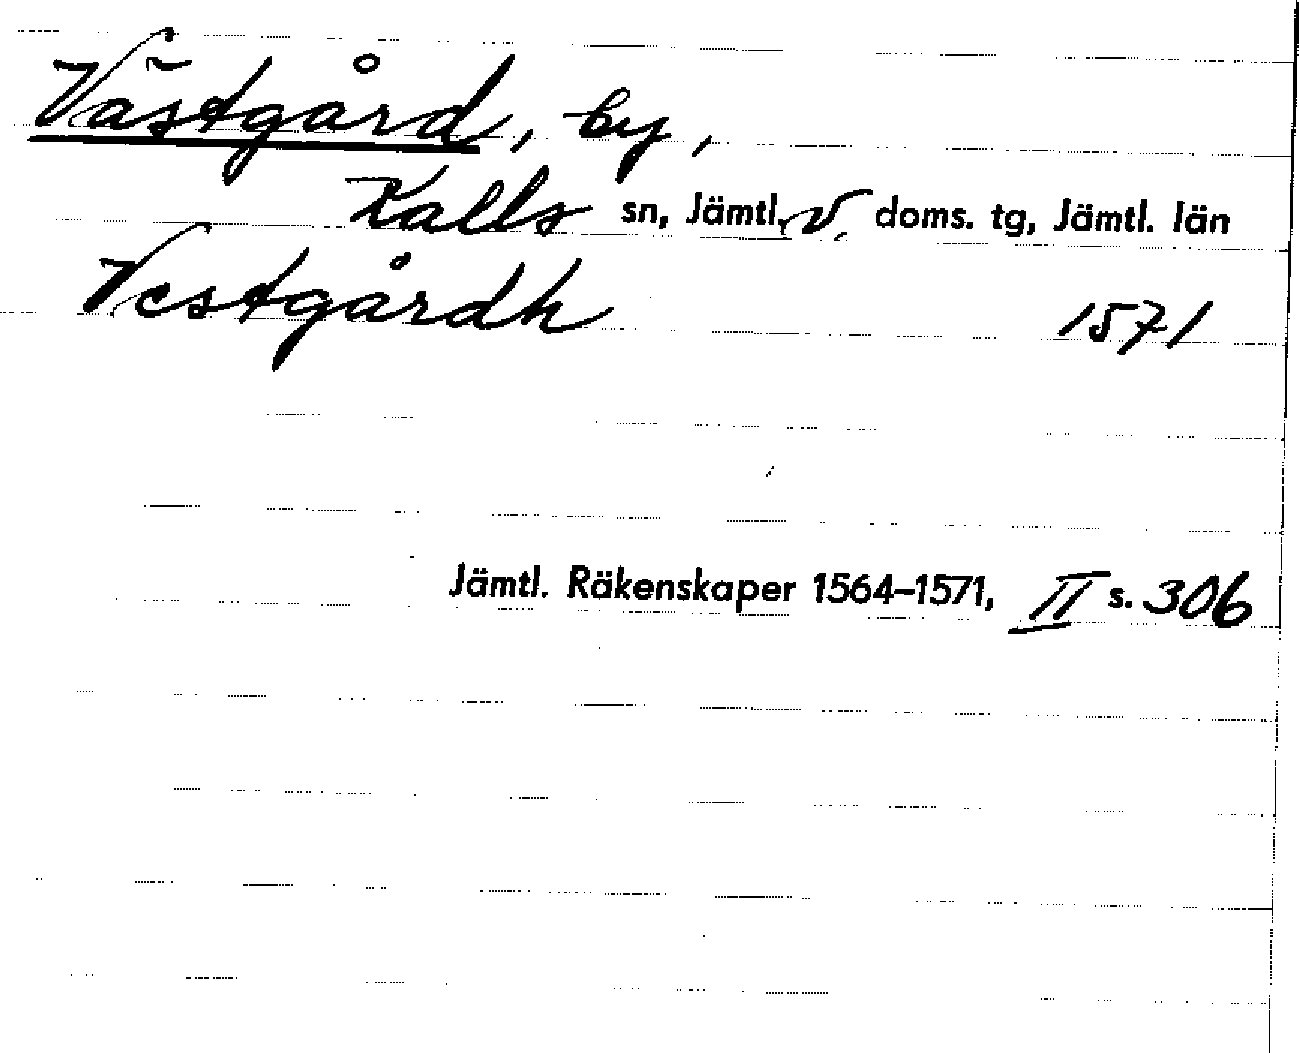 Västgård, by,
Kalls sn, Jämtl. V. doms. tg, Jämtl. län
Vestgårdh 1571
Jämtl. Räkenskaper 1564–1571, II s. 306